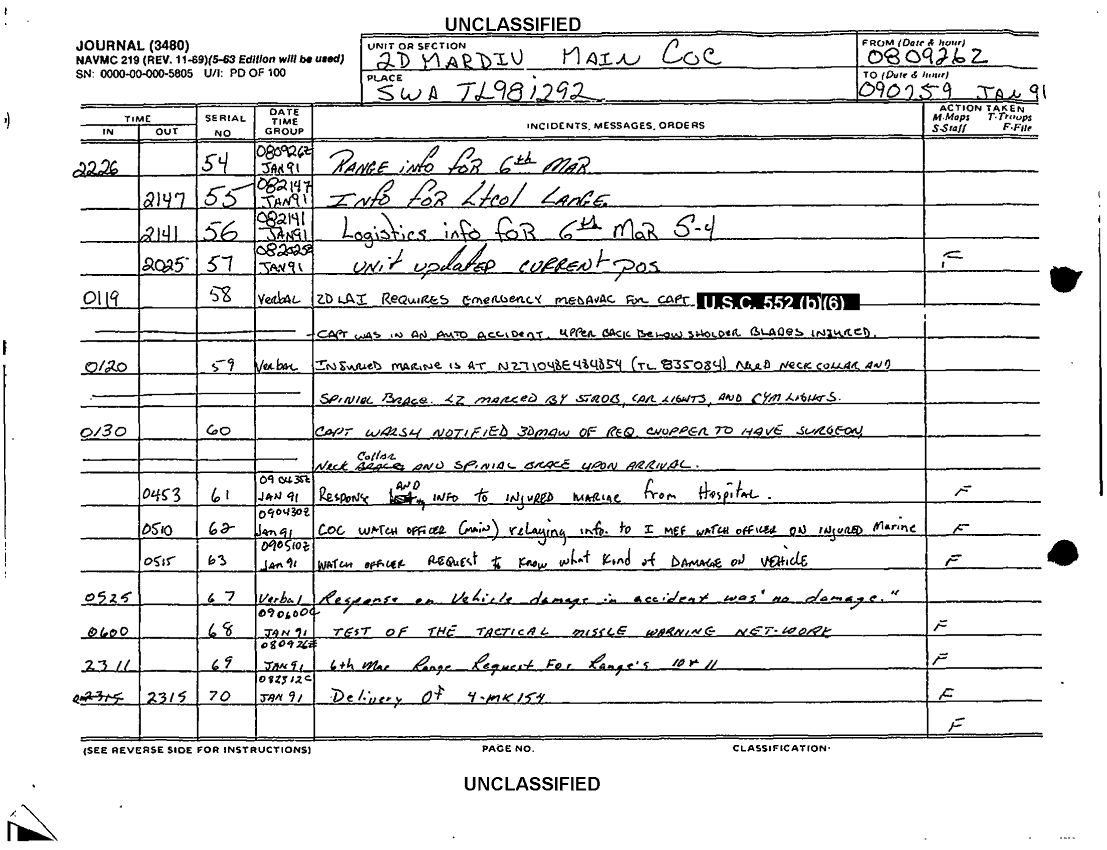 UNCLASSIFIED
JOURNAL (3480)
NAVMC 219 (REV. 11-69)(5-63 Edition will be used)
SN: 0000-00-000-5805 U/I: PD OF 100
UNIT OR SECTION
2D MARDIV MAIN COC
FROM (Date & hour)
080926Z
PLACE
SWA TL981292
TO (Date & hour)
090259 JAN 91
TIME
IN OUT
SERIAL NO
DATE TIME GROUP
INCIDENTS, MESSAGES, ORDERS
ACTION TAKEN
M-Maps T-Troups
S-Staff F-File
2226 54 080926Z JAN 91 RANGE info for 6th MAR
2147 55 082147 JAN 91 Info for Ltcol LANGE
2141 56 082141 JAN 91 Logistics info for 6th MAR S-4
2025 57 JAN 91 UNit updated CURRENT POS F
0119 58 Verbal 2D LAI REQUIRES EMERGENCY MEDAVAC FOR CAPT. U.S.C. 552 (b)(6)
CAPT WAS IN AN AUTO ACCIDENT. UPPER BACK BELOW SHOLDER BLADES INJURED.
0120 59 Verbal INJURIED MARINE IS AT N271048E484854 (TL 835084) NEED NECK COLLAR AND
SPINIAL BRACE. LZ MARKED BY STROB, CAR LIGHTS, AND CYM LIGHTS.
0130 60 CAPT WALSH NOTIFIED 3DMAW OF REQ. CHOPPER TO HAVE SURGEON,
NECK Collar AND SPINIAL BRACE UPON ARRIVAL.
0453 61 090435Z JAN 91 RESPONSE AND INFO TO INJURED MARINE from Hospital. F
0510 62 090430Z Jan 91 COC WATCH OFFICER (MAIN) relaying info. to I MEF WATCH OFFICER ON INJURED Marine F
0515 63 090510Z Jan 91 WATCH OFFICER REQUEST to KNOW what Kind of DAMAGE ON VEHICLE F
0525 67 Verbal Response on Vehicle damage in accident was "no damage."
0600 68 090600C JAN 91 TEST OF THE TACTICAL MISSLE WARNING NET-WORK F
2311 69 080926Z JAN 91 6th Mar Range Request For Range's 10 & 11 F
2315 2315 70 082312C JAN 91 Delivery Of 4-MK154 F
F
(SEE REVERSE SIDE FOR INSTRUCTIONS) PAGE NO. CLASSIFICATION·
UNCLASSIFIED